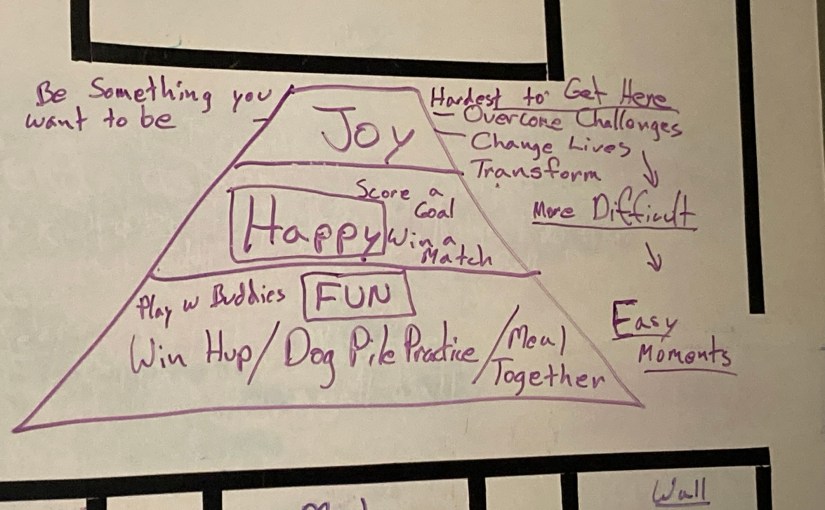 Be Something you
want to be
Joy
Hardest to Get Here
- Overcome Challenges
- Change Lives
Transform
Score a
Goal
Happy
Win a
Match
More Difficult
Play w Buddies
FUN
Win Hup/Dog Pile Practice/Meal
Together
Easy
Moments
Wall